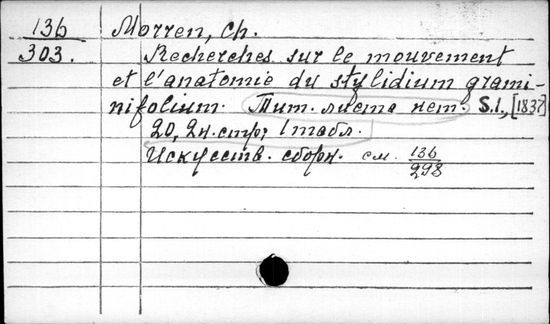 136 Morren, Ch.
303. Recherches sur le mouvement
et l'anatomie du stylidium grami-
nifolium. Тит. листа нет. S.l., [1837]
20, 2н. стр; 1 табл.
Искусств. сборн. см. 136
298